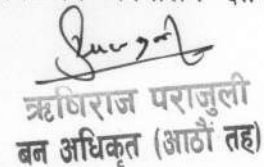 ऋषिराज पराजुली
बन अधिकृत (आठौं तह)